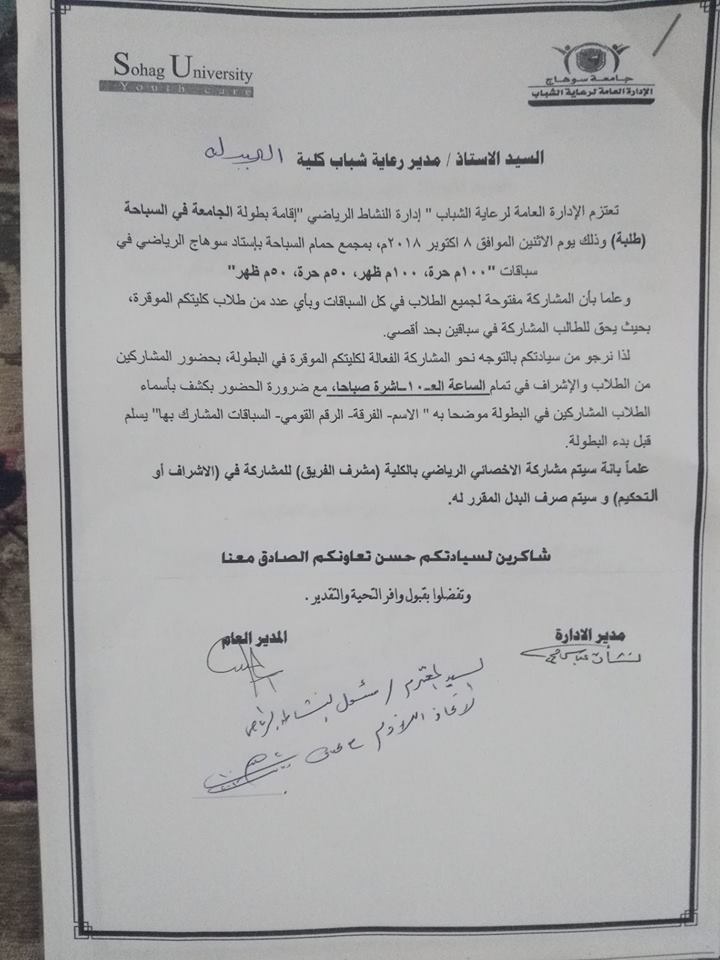 Sohag University
Youth care
جامعة سوهاج
الإدارة العامة لرعاية الشباب
السيد الاستاذ / مدير رعاية شباب كلية الصيدله
تعتزم الإدارة العامة لرعاية الشباب " إدارة النشاط الرياضي "إقامة بطولة الجامعة في السباحة
(طلبة) وذلك يوم الاثنين الموافق ٨ اكتوبر ٢٠١٨م، بمجمع حمام السباحة بإستاد سوهاج الرياضي في
سباقات "١٠٠م حرة، ١٠٠م ظهر، ٥٠م حرة، ٥٠م ظهر"
وعلما بأن المشاركة مفتوحة لجميع الطلاب في كل السباقات وبأي عدد من طلاب كليتكم الموقرة،
بحيث يحق للطالب المشاركة في سباقين بحد أقصي.
لذا نرجو من سيادتكم بالتوجه نحو المشاركة الفعالة لكليتكم الموقرة في البطولة، بحضور المشاركين
من الطلاب والإشراف في تمام الساعة العـ١٠ـاشرة صباحا، مع ضرورة الحضور بكشف بأسماء
الطلاب المشاركين في البطولة موضحا به " الاسم- الفرقة- الرقم القومي- السباقات المشارك بها" يسلم
قبل بدء البطولة.
علماً بانة سيتم مشاركة الاخصائي الرياضي بالكلية (مشرف الفريق) للمشاركة في (الاشراف أو
التحكيم) و سيتم صرف البدل المقرر له.
شاكرين لسيادتكم حسن تعاونكم الصادق معنا
وتفضلوا بقبول وافر التحية والتقدير.
مدير الادارة
المدير العام
السيد المحترم / مسئول النشاط الرياضى
لاتخاذ اللازم